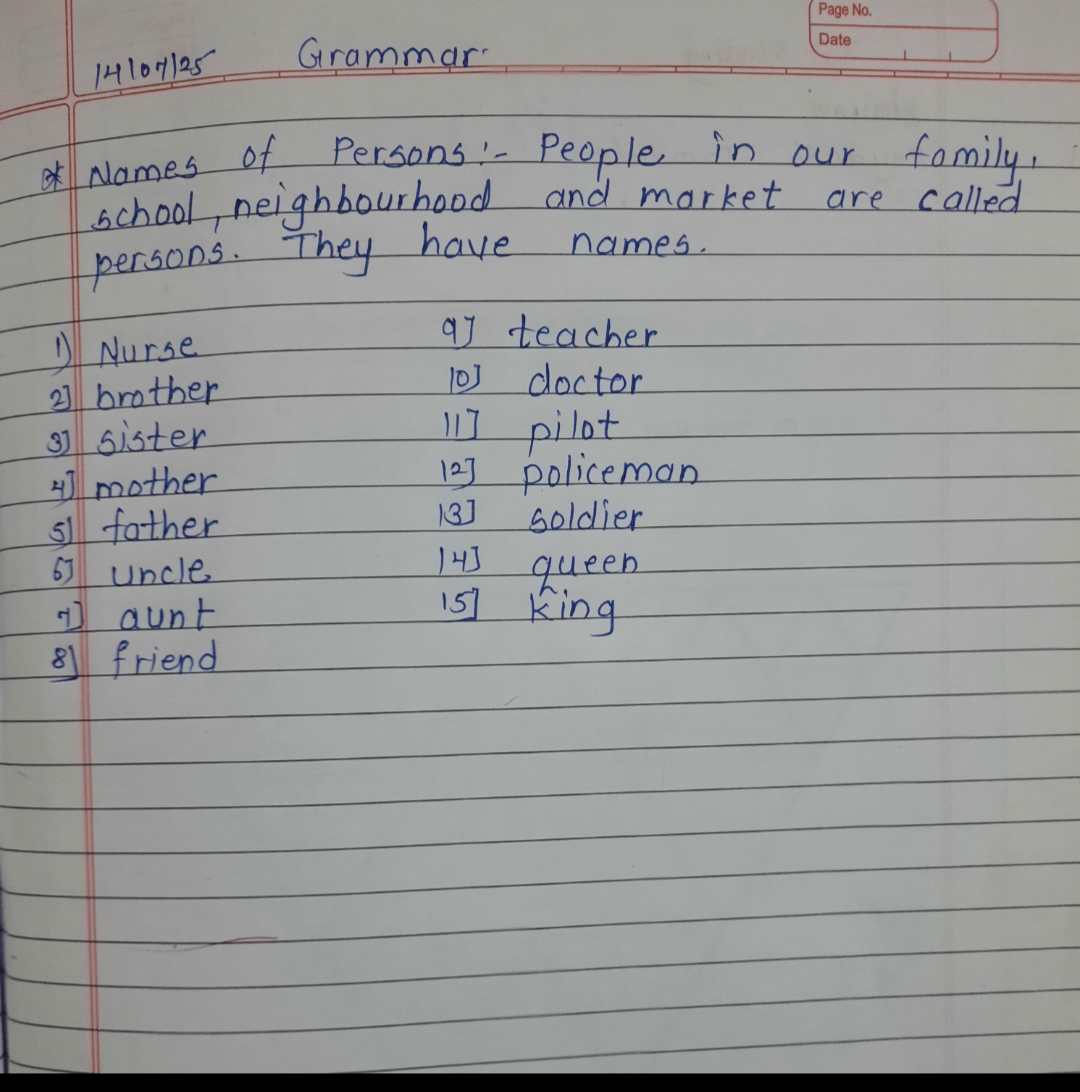 Page No.
Date
14/07/25 Grammar
* Names of Persons :- People in our family,
school, neighbourhood and market are called
persons. They have names.
1) Nurse
2] brother
3] sister
4] mother
5] father
6] uncle
7] aunt
8] friend
9] teacher
10] doctor
11] pilot
12] policeman
13] soldier
14] queen
15] king